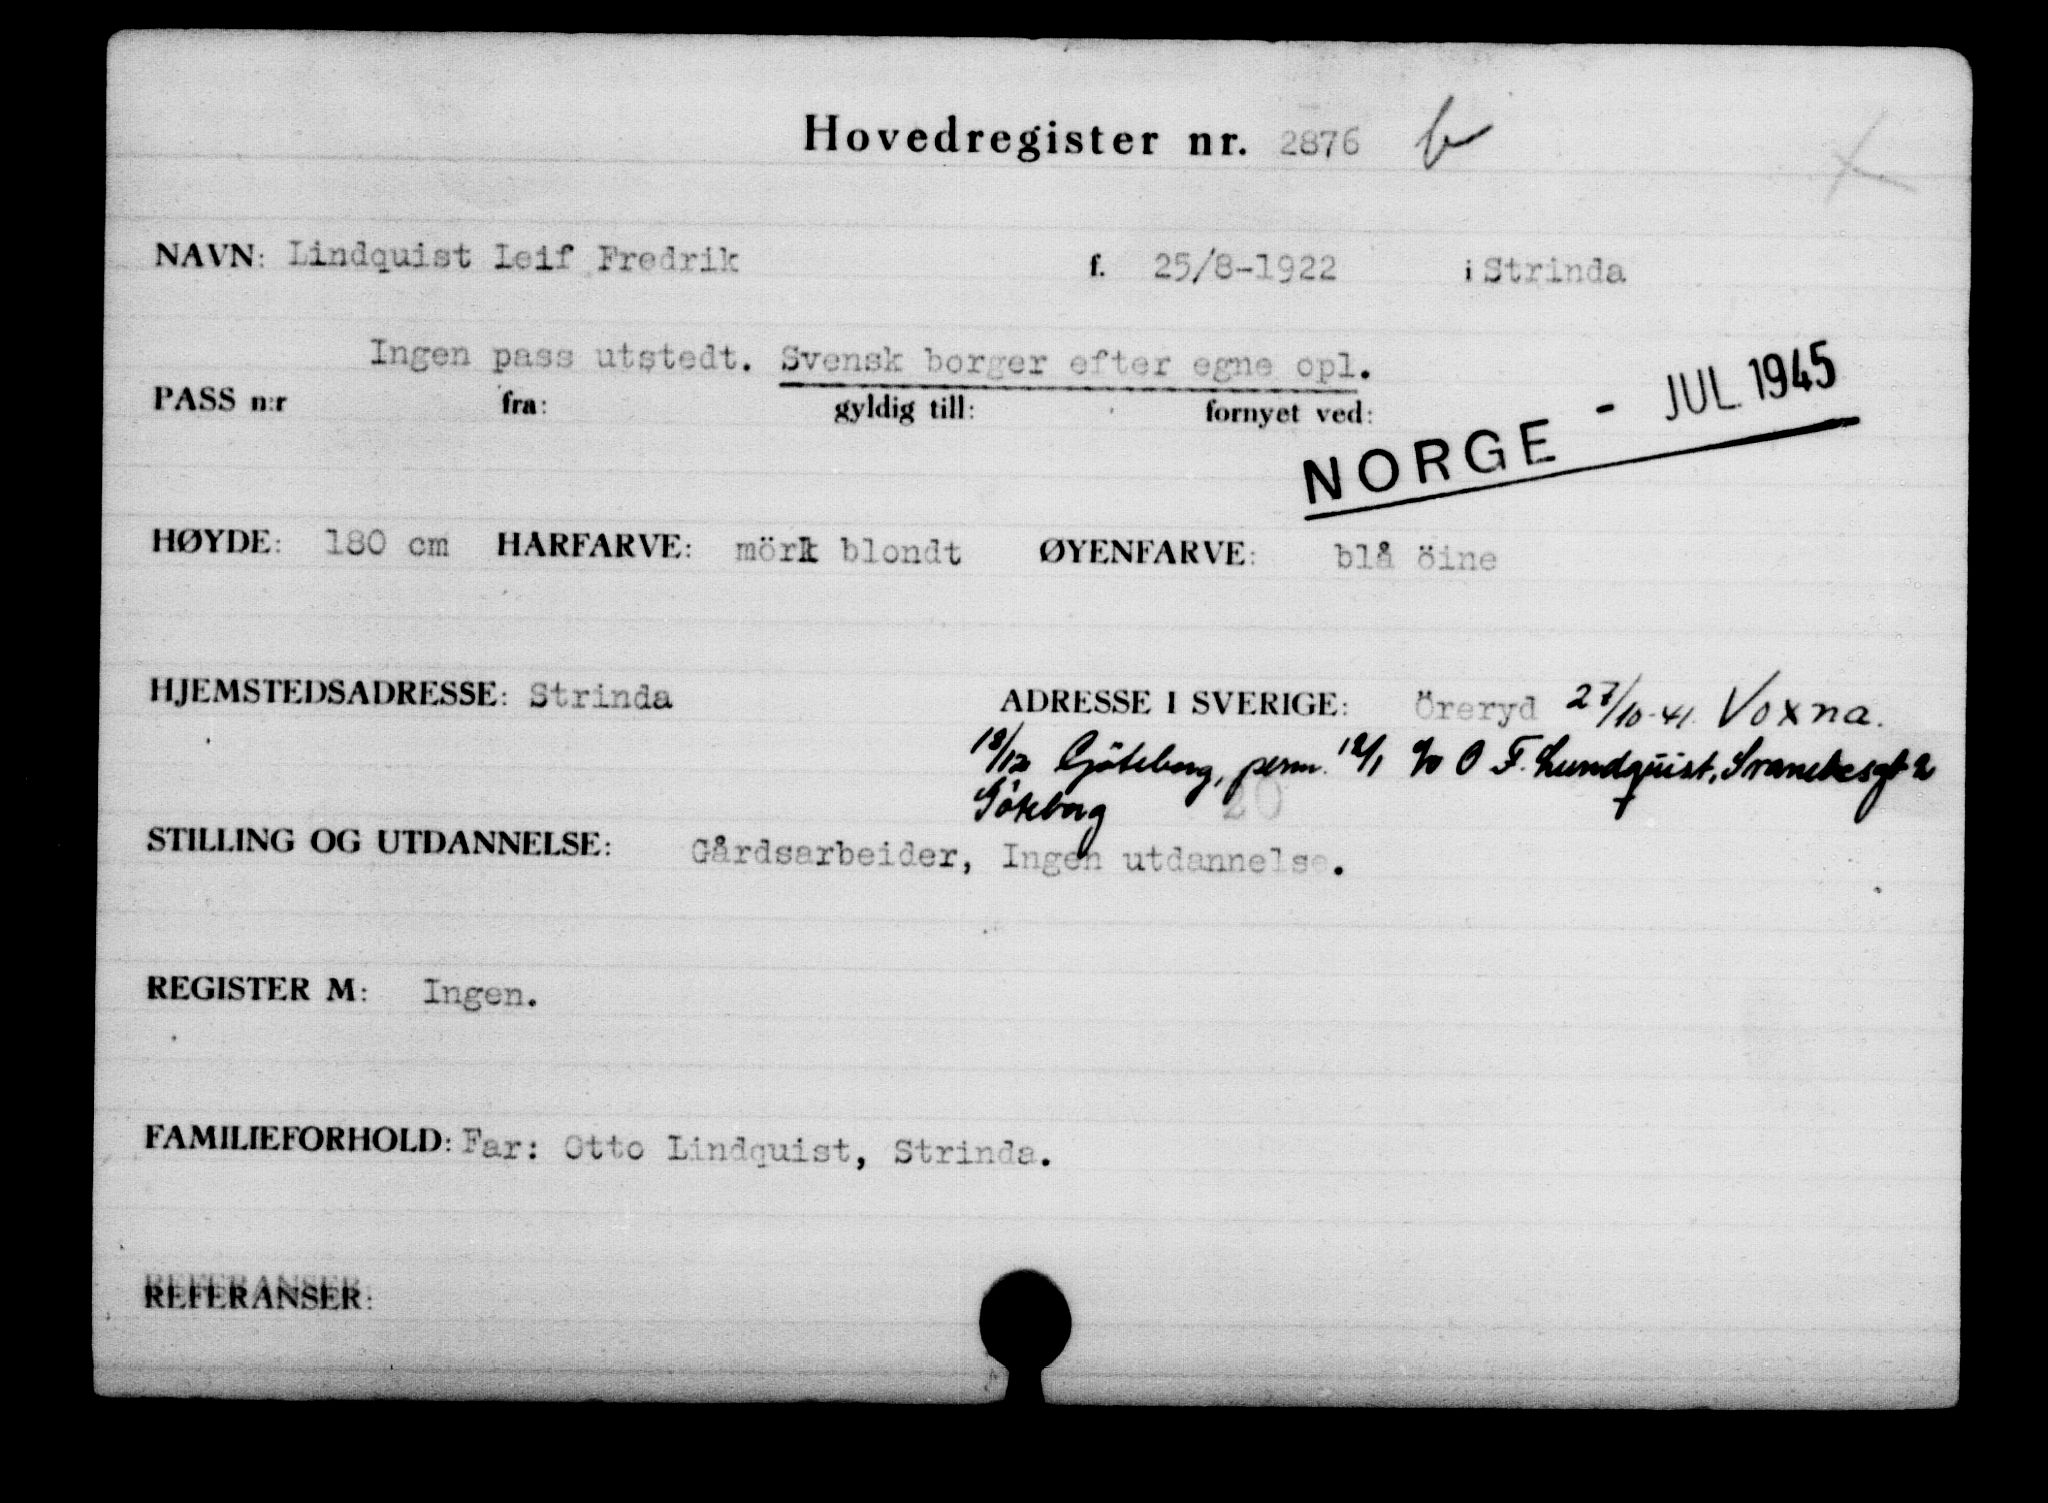 Hovedregister nr. 2876
NAVN: Lindquist Leif Fredrik f. 25/8-1922 i Strinda
Ingen pass utstedt. Svensk borger efter egne opl.
PASS n:r fra: gyldig till: fornyet ved:
NORGE - JUL 1945
HØYDE: 180 cm HARFARVE: mörk blondt ØYENFARVE: blå öine
HJEMSTEDSADRESSE: Strinda ADRESSE I SVERIGE: Öreryd 27/10-41. Voxna.
18/12 Göteborg, perm. c/o O F. Lundquist,
Göteborg 20
STILLING OG UTDANNELSE: Gårdsarbeider, Ingen utdannelse.
REGISTER M: Ingen.
FAMILIEFORHOLD: Far: Otto Lindquist, Strinda.
REFERANSER: